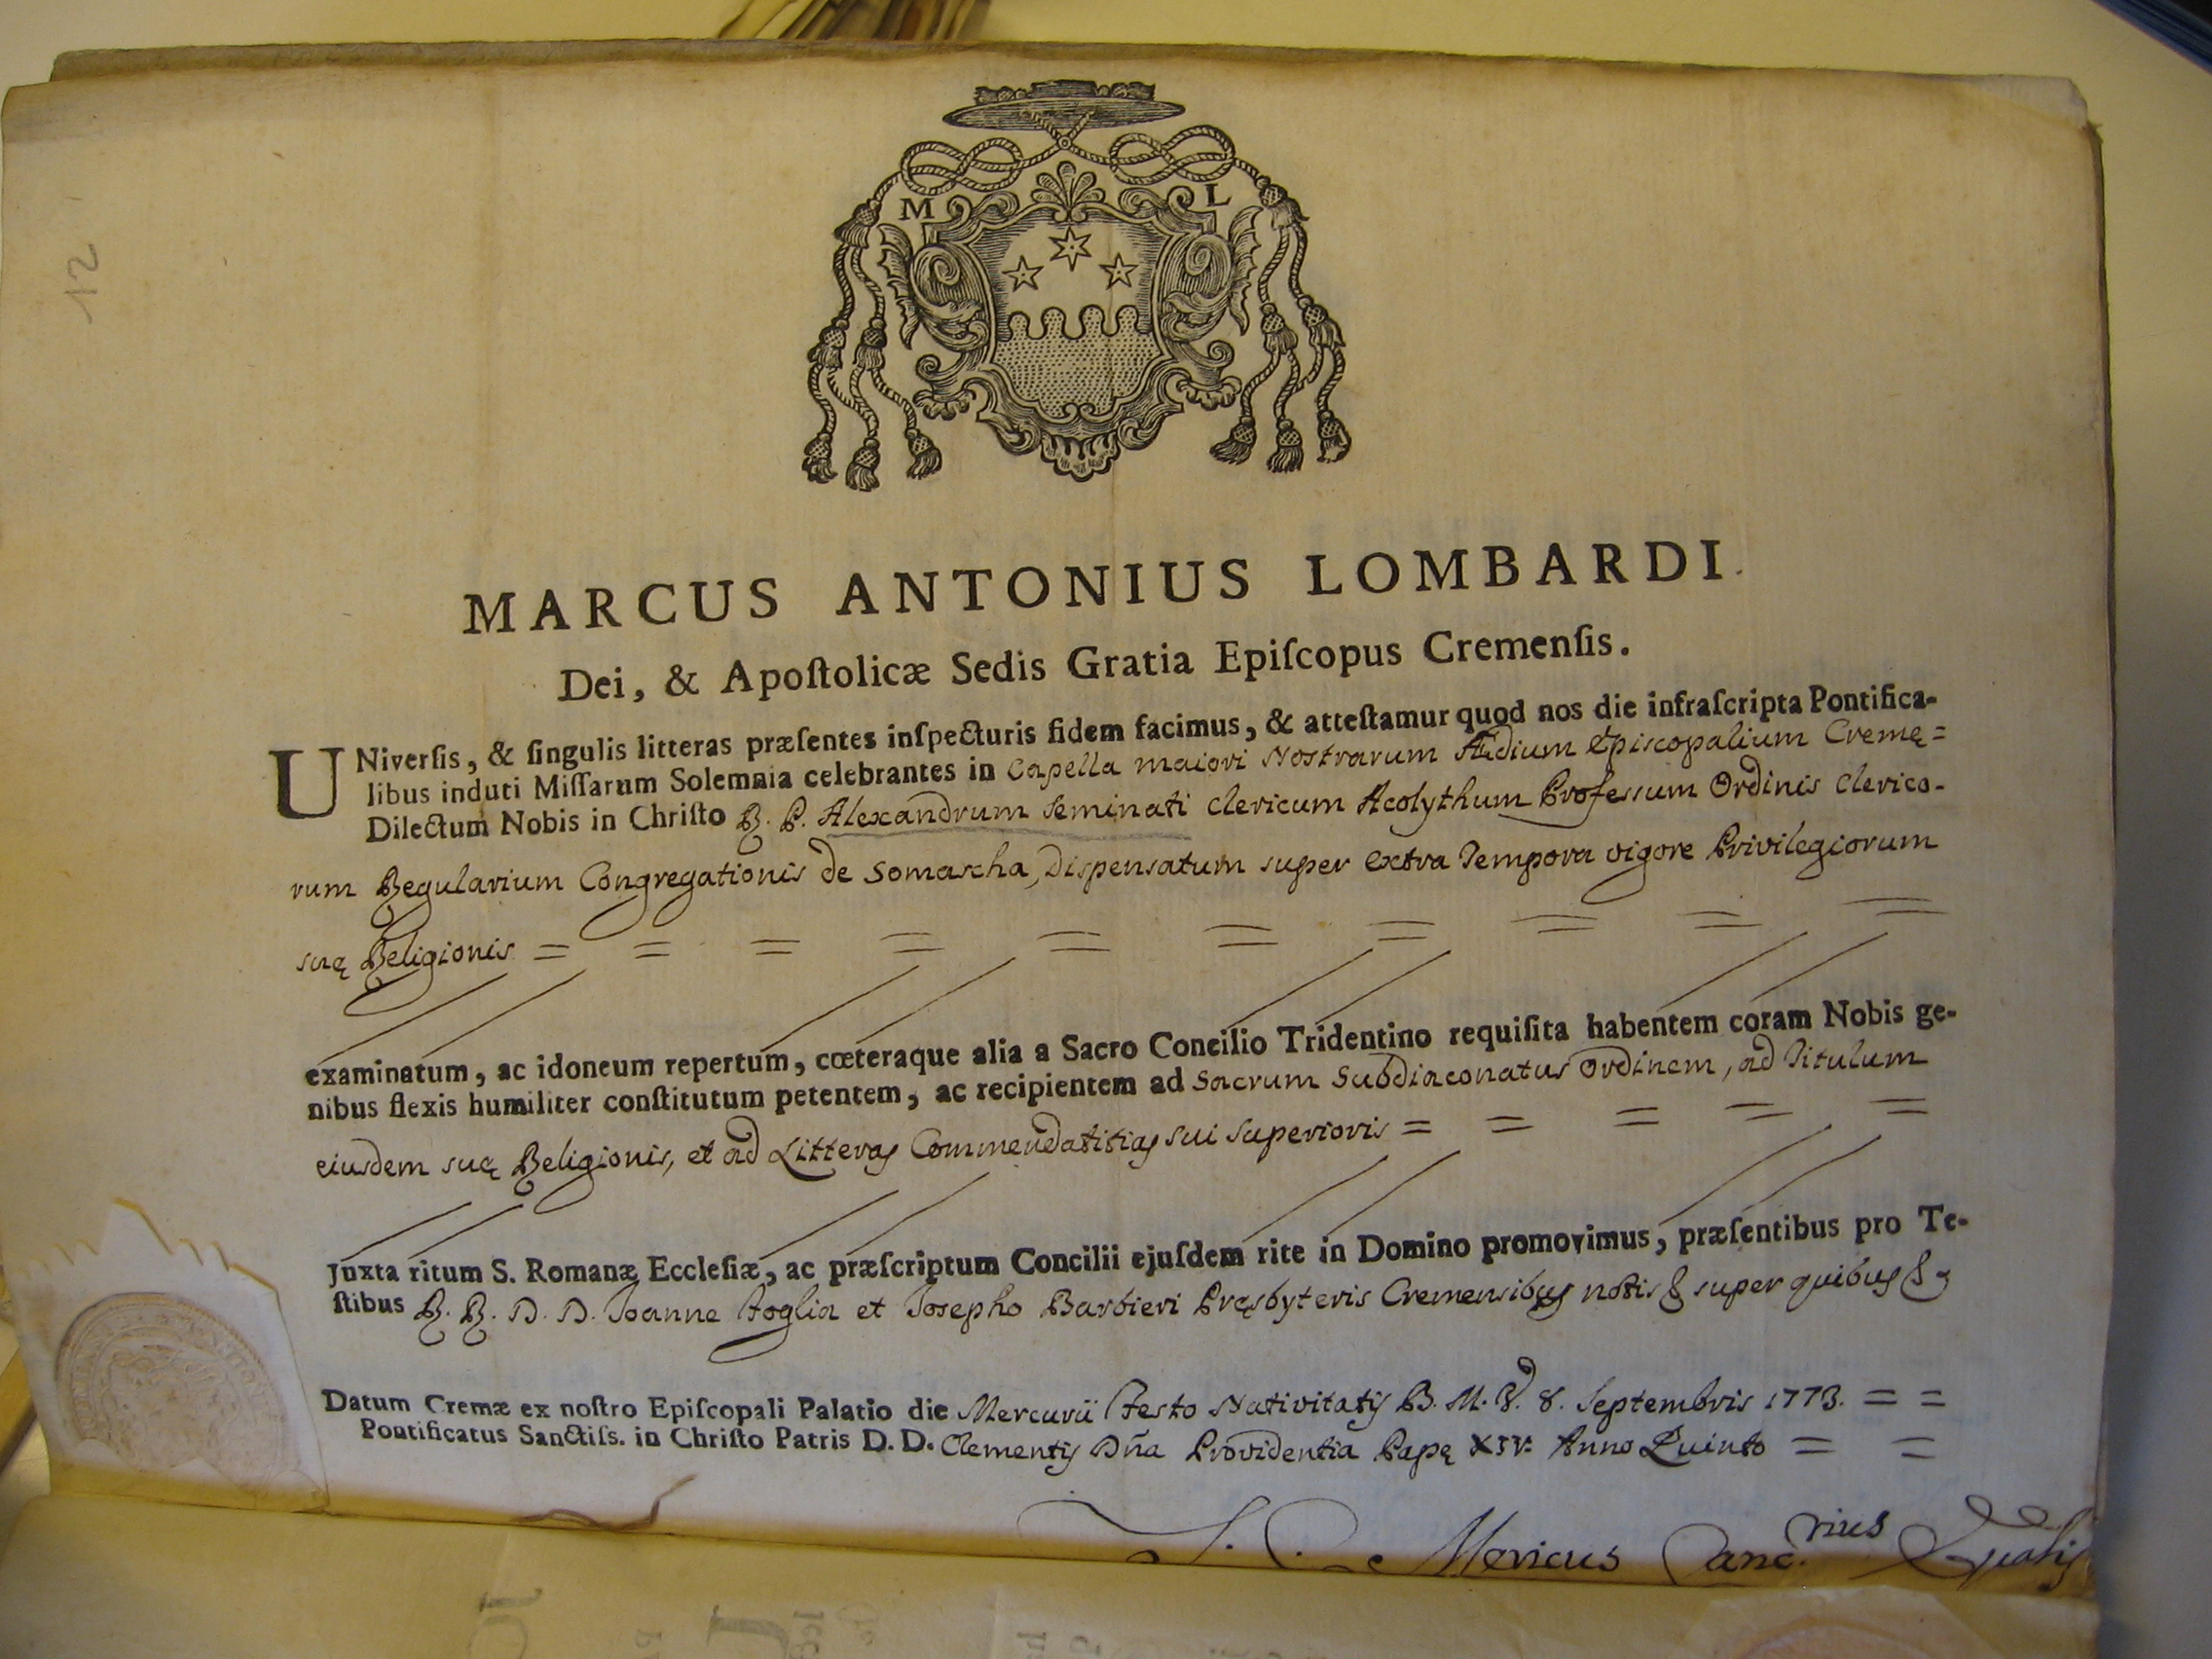 12
M L
MARCUS ANTONIUS LOMBARDI.
Dei, & Apoſtolicæ Sedis Gratia Epiſcopus Cremenſis.
UNiverſis, & ſingulis litteras præſentes inſpecturis fidem facimus, & atteſtamur quod nos die infraſcripta Pontifica-
libus induti Miſſarum Solemnia celebrantes in Capella maiori Nostrarum Ædium Episcopalium Cremę =
Dilectum Nobis in Chriſto R. P. Alexandrum Seminati Clericum Acolythum Professum Ordinis Clerico-
rum Regularium Congregationis de Somascha, Dispensatum super extra Tempora vigore Privilegiorum
suę Religionis = = = = = = = = = =
examinatum, ac idoneum repertum, cœteraque alia a Sacro Concilio Tridentino requiſita habentem coram Nobis ge-
nibus flexis humiliter conſtitutum petentem, ac recipientem ad Sacrum Subdiaconatus Ordinem, ad Titulum
eiusdem suę Religionis, et ad Litteras Commendatitias sui Superioris = = = = =
Juxta ritum S. Romanæ Eccleſiæ, ac præſcriptum Concilii ejuſdem rite in Domino promovimus, præſentibus pro Te-
ſtibus R. R. D. D. Joanne Foglia et Josepho Barbieri Pręsbyteris Cremensibus notis & super quibus &
Datum Cremæ ex noſtro Epiſcopali Palatio die Mercurii Festo Nativitatis B. M. V. 8. Septembris 1773. = =
Pontificatus Sanctiſs. in Chriſto Patris D. D. Clementis Dña Providentia Papę XIV. Anno Quinto = =
Mericus Canc.rius